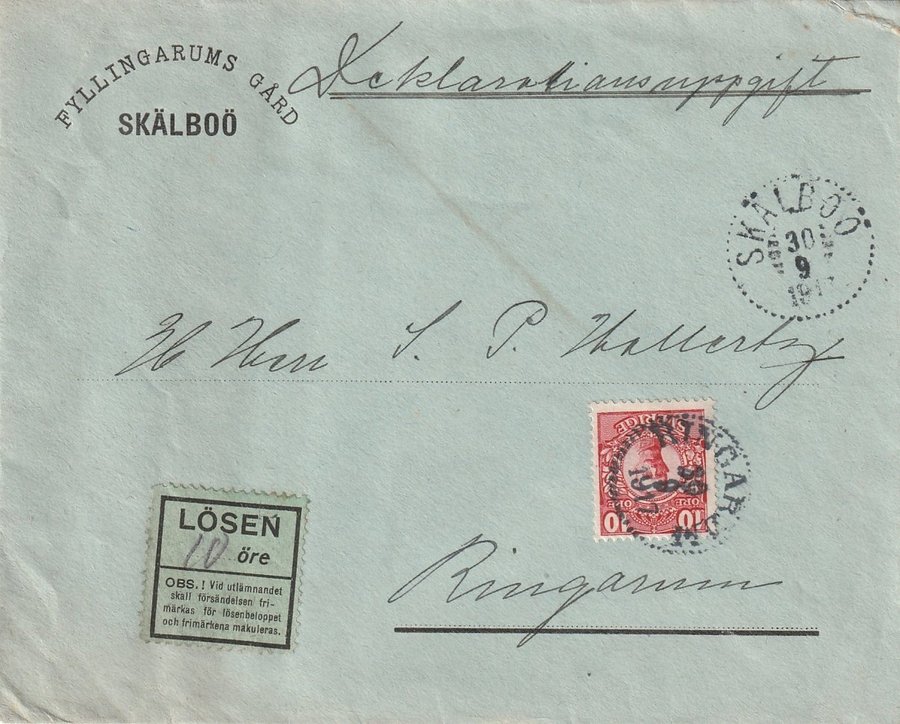 FYLLINGARUMS GÅRD
SKÄLBOÖ
Deklarationsuppgift
SKÄLBOÖ
30
9
H Herr S. P. Wallertz
SVERIGE
10 ÖRE ÖRE 10
RINGARUM
30
9
1917
Ringarum
LÖSEN
10 öre
OBS.! Vid utlämnandet
skall försändelsen fri-
märkas för lösenbeloppet
och frimärkena makuleras.